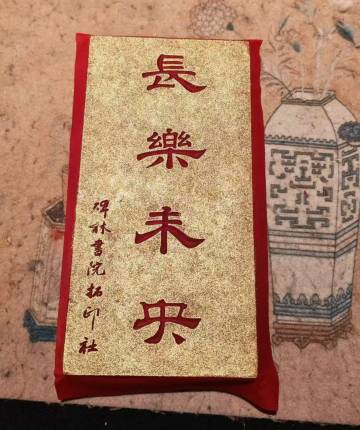 長樂未央
碑林書院拓印社